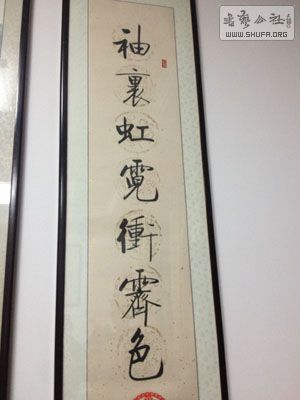 袖裏虹霓衝霽色
书艺公社
WWW.SHUFA.ORG